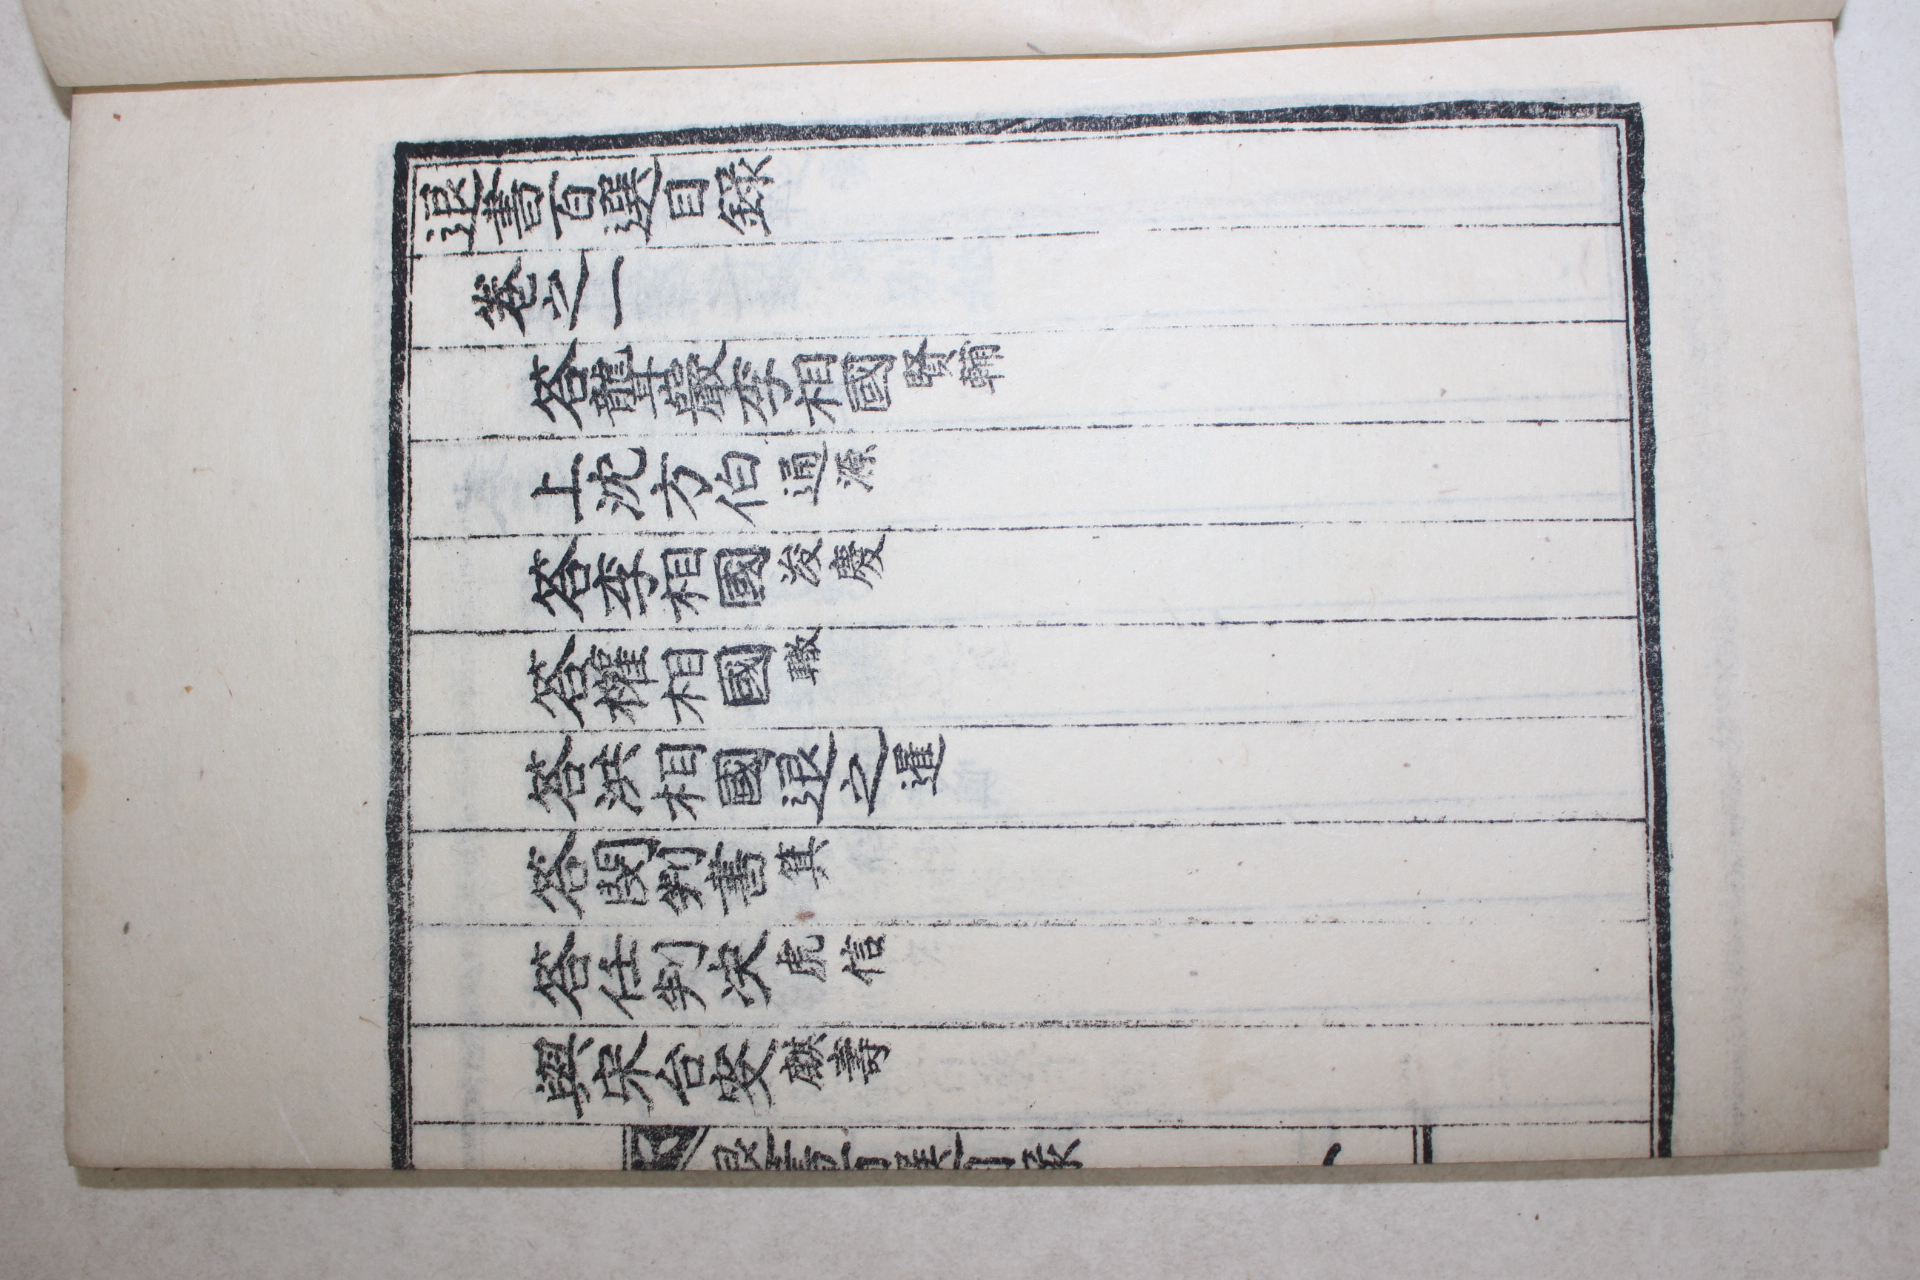 退書百選目錄
卷之一
答聾巖李相國賢輔
上沈方伯通源
答李相國浚慶
答權相國轍
答洪相國退之暹
答閔判書箕
答任判决虎信
與宋台叟麒壽
退書百選目錄